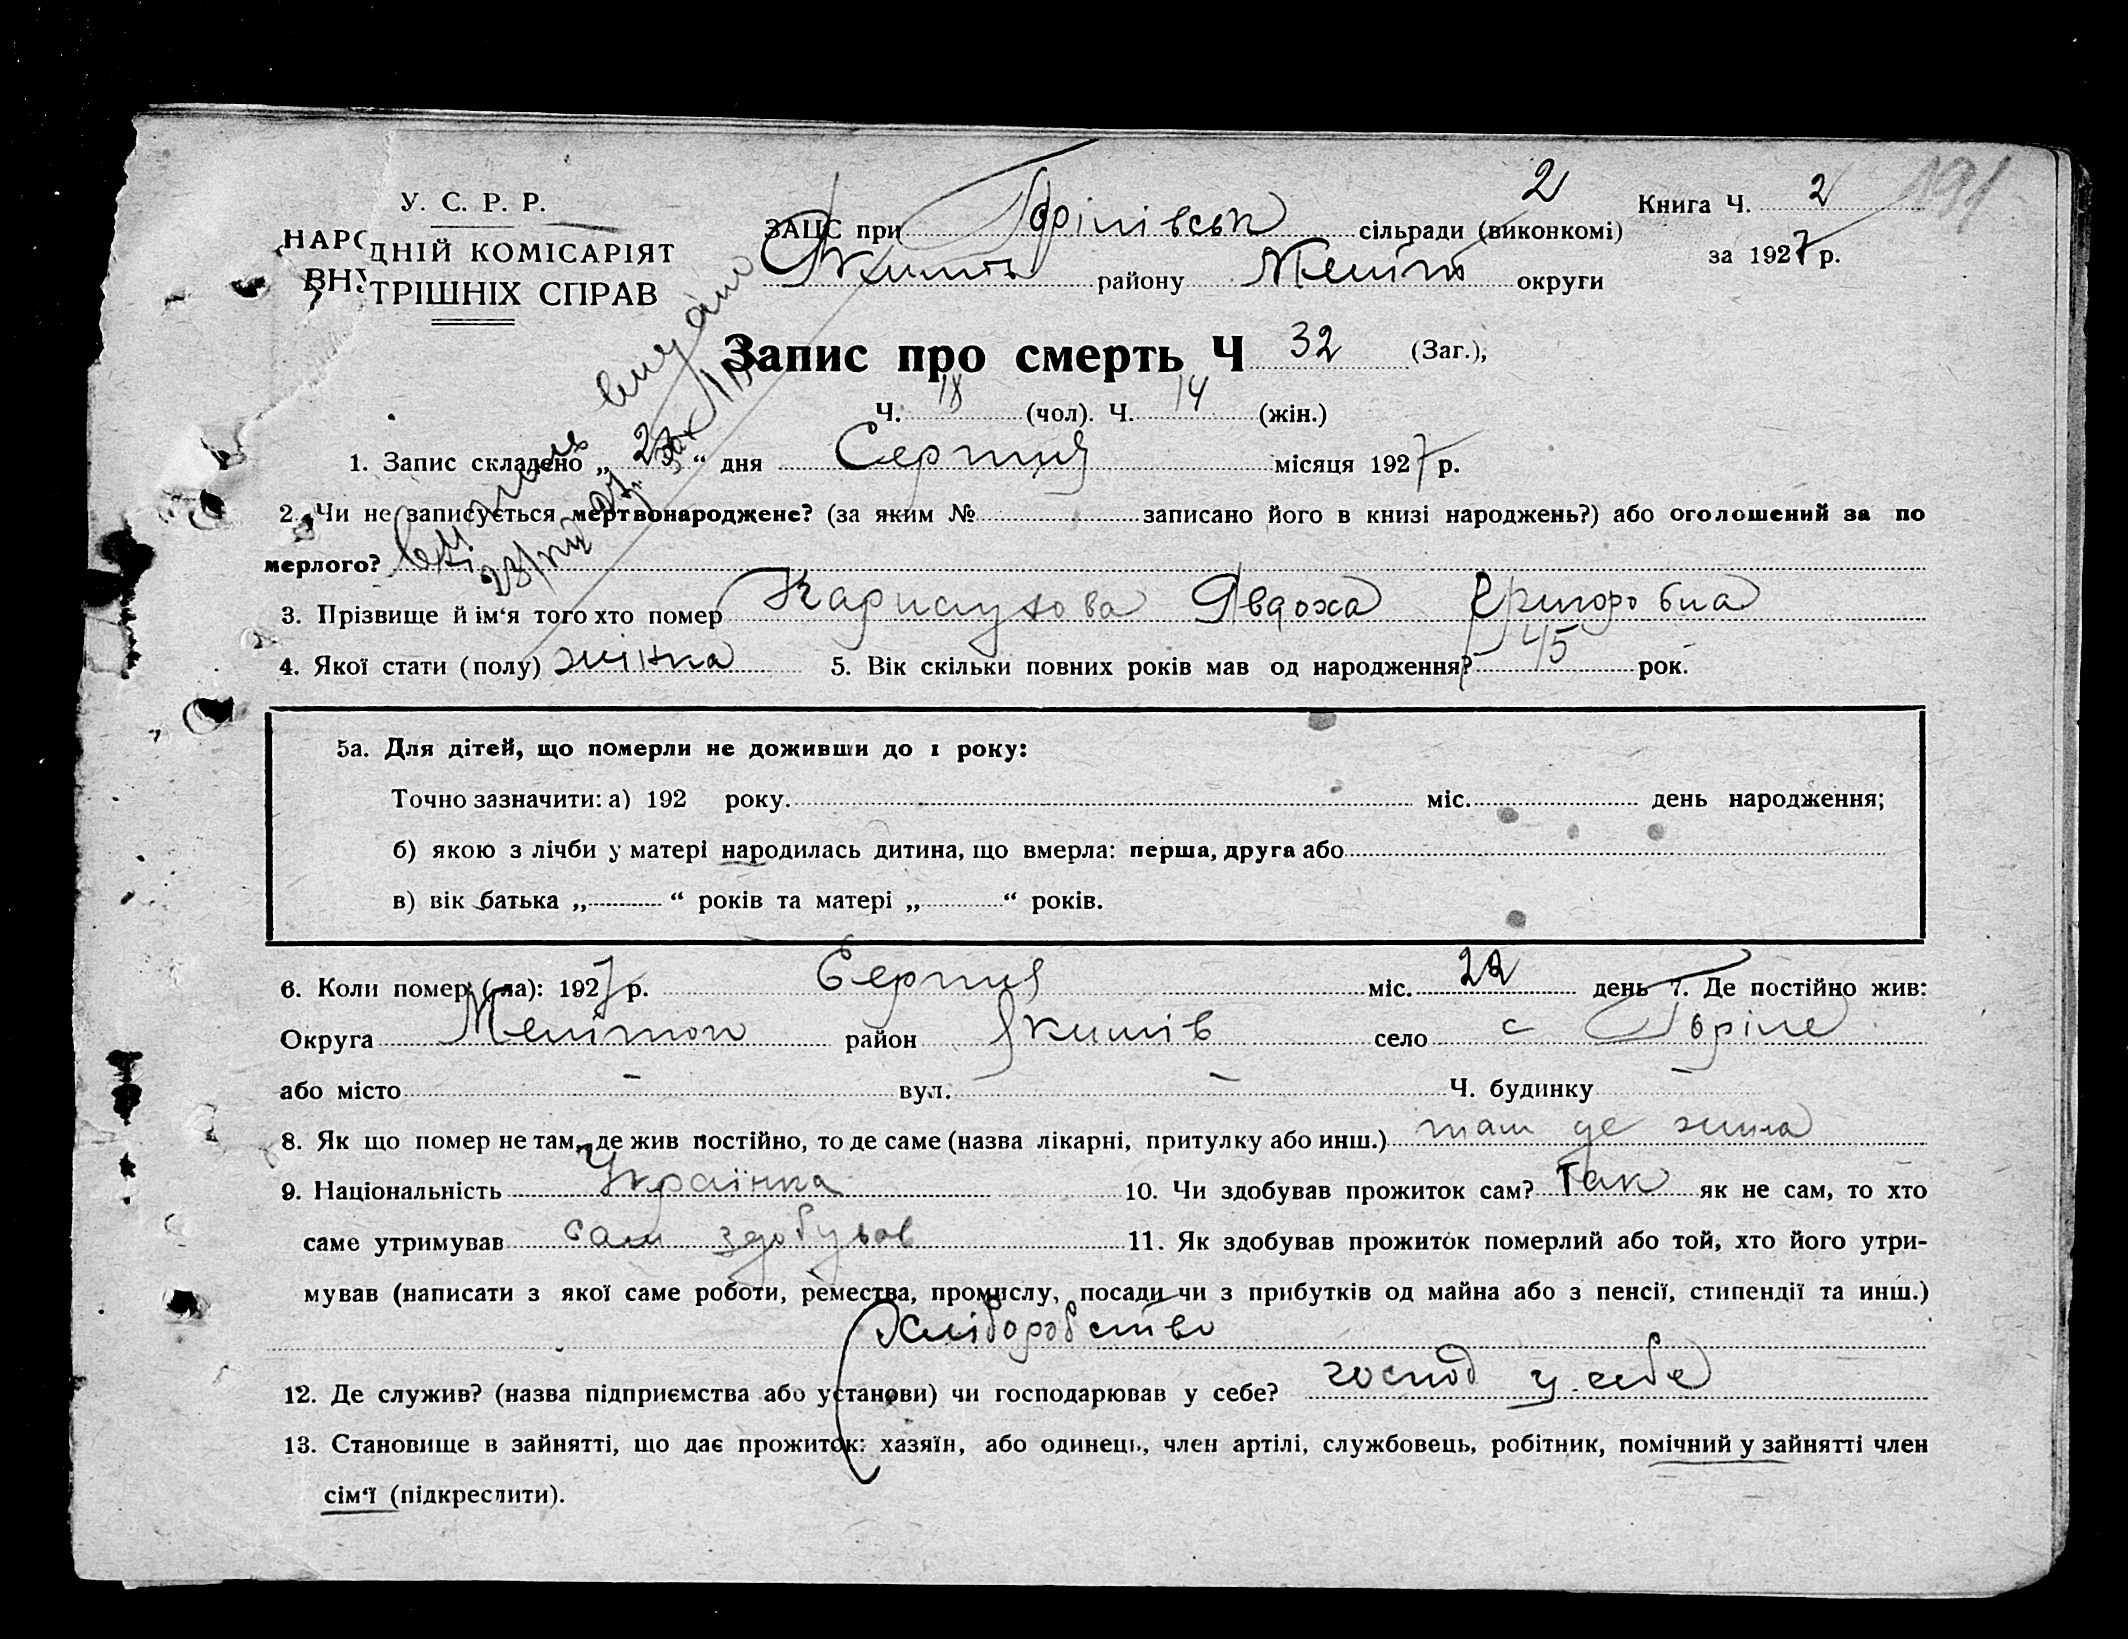 У. С. Р. Р.
НАРОДНІЙ КОМІСАРІЯТ
ВНУТРІШНІХ СПРАВ
ЗАГС при Горілівськ сільради (виконкомі) 2
Якимів району Меліт округи
Книга Ч. 2
за 1927 р.
191
Запис про смерть Ч 32 (Заг.),
Ч. 18 (чол). Ч. 14 (жін.)
1. Запис складено „ 23 “ дня Серпня місяця 1927 р.
2. Чи не записується мертвонароджене? (за яким № записано його в книзі народжень?) або оголошений за по
мерлого?
витяг видано
3. Прізвище й ім‘я того хто помер Явдоха Григоровна
4. Якої стати (полу) жінка 5. Вік скільки повних років мав од народження? 45 рок.
5а. Для дітей, що померли не доживши до 1 року:
Точно зазначити: а) 192 року. міс. день народження;
б) якою з лічби у матері народилась дитина, що вмерла: перша, друга або
в) вік батька „ “ років та матері „ “ років.
6. Коли помер (-ла): 1927 р. Серпня міс. 22 день 7. Де постійно жив:
Округа Мелітоп район Якимів село с Горіле
або місто - вул. - Ч. будинку -
8. Як що помер не там, де жив постійно, то де саме (назва лікарні, притулку або инш.) там де жила
9. Національність Українка 10. Чи здобував прожиток сам? Так як не сам, то хто
саме утримував сам здобував 11. Як здобував прожиток померлий або той, хто його утри-
мував (написати з якої саме роботи, ремества, промислу, посади чи з прибутків од майна або з пенсії, стипендії та инш.)
Хліборобство
12. Де служив? (назва підприємства або установи) чи господарював у себе? господ у себе
13. Становище в зайнятті, що дає прожиток: хазяїн, або одинець, член артілі, службовець, робітник, помічний у зайнятті член
сім‘ї (підкреслити).